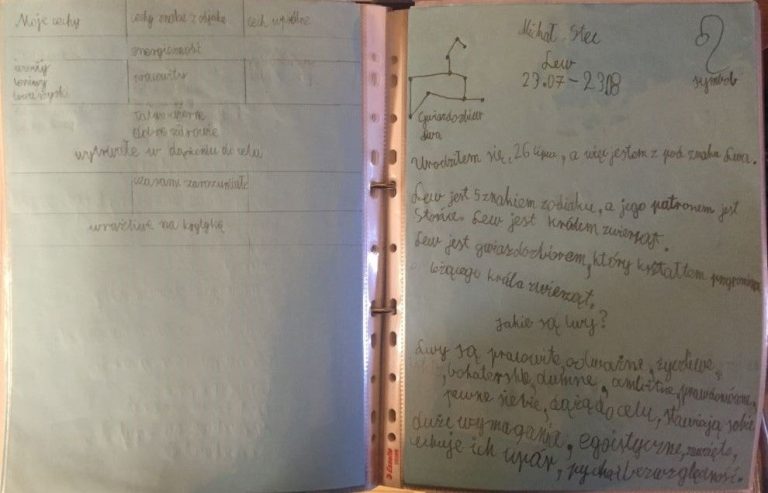 Moje cechy
cechy znaku z
cech wspólne
energiczność
leniwy
pracowity
dobre zdrowie
wytrwałe w dążeniu do celu
czasami zarozumiałe
wrażliwe na krytykę
Michał Stec
Lew
23.07 - 23.08
symbol
Gwiazdozbiór
Lwa
Urodziłem się, 26 lipca, a więc jestem z pod znaku Lwa.
Lew jest 5 znakiem zodiaku, a jego patronem jest
Słońce. Lew jest królem zwierząt.
Lew jest gwiazdozbiorem, który kształtem przypomina
leżącego króla zwierząt.
Jakie są lwy?
Lwy są pracowite, odważne, życzliwe,
bohaterskie, dumne, ambitne, prawdomówne,
pewne siebie, dążą do celu, stawiają sobie
duże wymagania, egoistyczne, zawzięte,
cechuje ich upór, pycha i bezwzględność.
Esselte